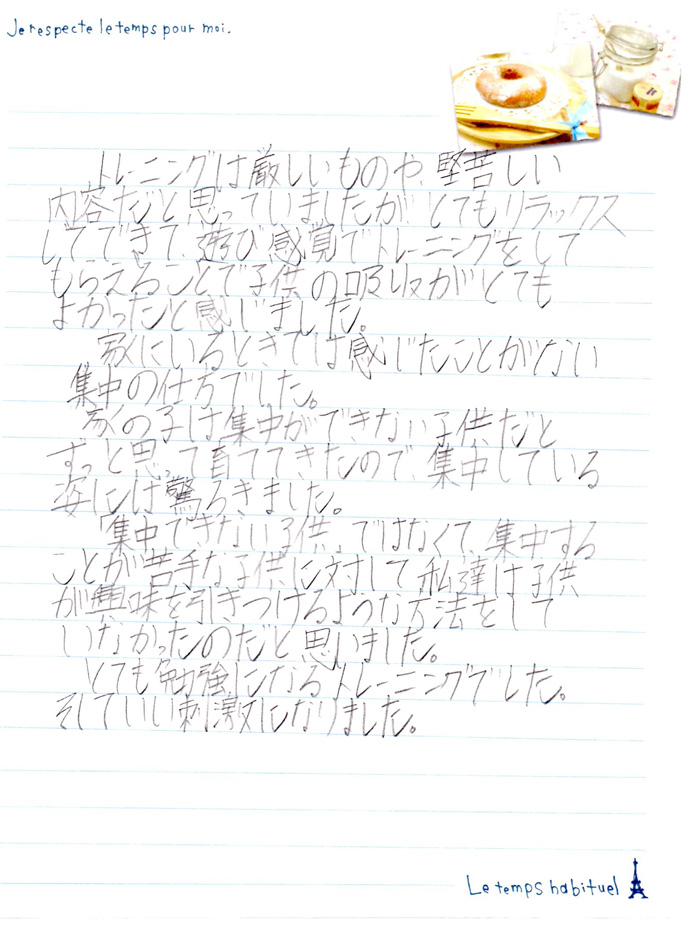 Je respecte le temps pour moi.
トレーニングは厳しいものや、堅苦しい
内容だと思っていましたが、とてもリラックス
してできて、遊び感覚でトレーニングをして
もらえることで子供の吸収がとても
よかったと感じました。
家にいるときでは感じたことがない
集中の仕方でした。
家の子は集中ができない子供だと
ずっと思って育ててきたので、集中している
姿には驚ろきました。
「集中できない子供」ではなくて、集中する
ことが苦手な子供に対して私達は子供
が興味を引きつけるような方法をして
いなかったのだと思いました。
とても勉強になるトレーニングでした。
そしていい刺激になりました。
Le temps habituel